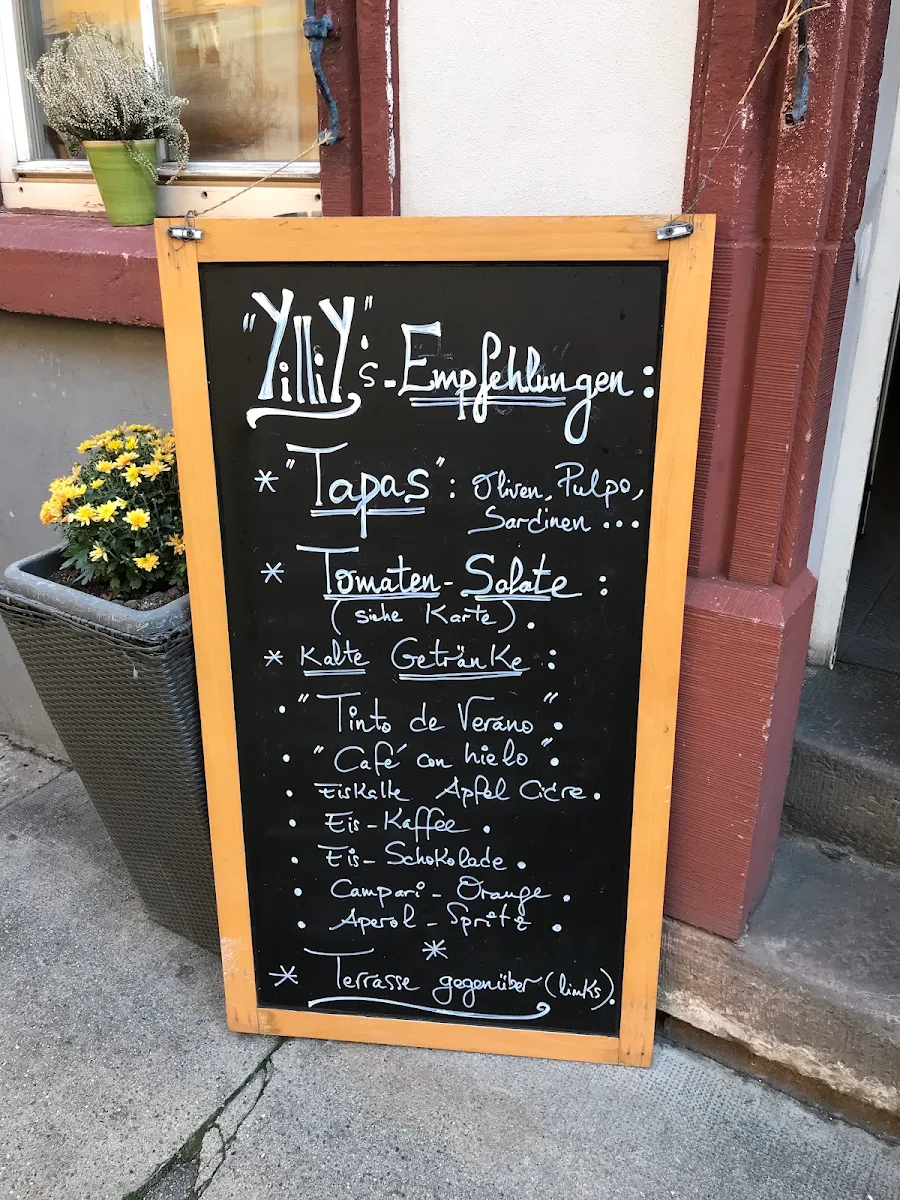 "YilliY"'s-Empfehlungen:
* "Tapas": Oliven, Pulpo,
Sardinen ...
* Tomaten-Salate:
(siehe Karte).
* Kalte Getränke:
• "Tinto de Verano".
• "Café con hielo".
• Eiskalte Apfel Cidre.
• Eis-Kaffee.
• Eis-Schokolade.
• Campari-Orange.
• Aperol-Spritz.
*
* Terrasse gegenüber (links).